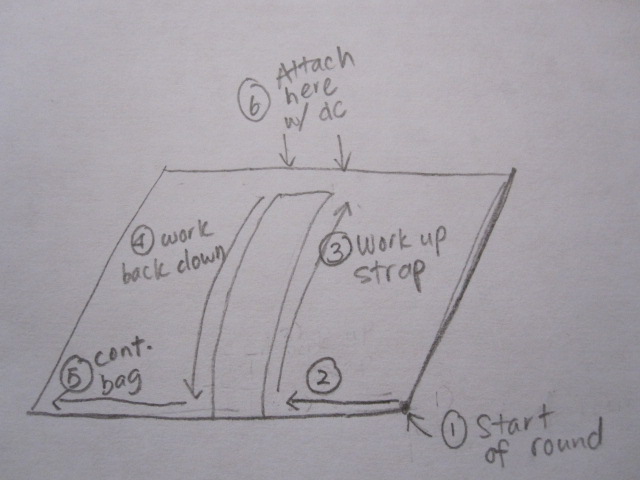 ⑥ Attach
here
w/ dc
④ work
back down
③ Work up
strap
⑤ cont.
bag
②
① Start
of round